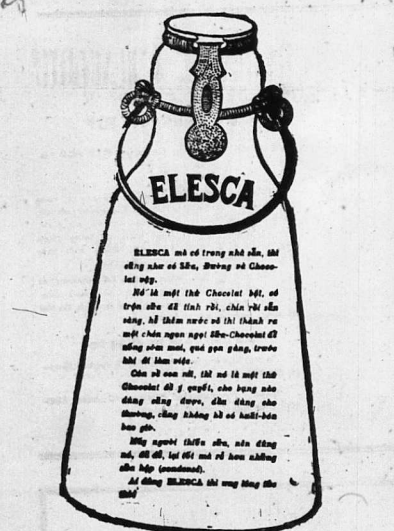 ELESCA
ELESCA mà có trong nhà sẵn, thì
cũng như có Sữa, Đường và Choco-
lat vậy.
Nó là một thứ Chocolat bột, có
trộn sữa đã tinh rồi, chín rồi sẵn
sàng, hễ thêm nước vô thì thành ra
một chén ngon ngọt Sữa-Chocolat để
uống sớm mai, quá gọn gàng, trước
khi đi làm việc.
Còn về con nít, thì nó là một thứ
Chocolat dĩ ý quyết, cho hạng nào
dùng cũng được, dầu dùng cho
thường, cũng không hề có huỡt-bón
bao giờ.
người thiếu sữa, nên dùng
nó, đã đủ, lại tốt mà rẻ hơn những
sữa hộp (condensé).
Ai dùng ELESCA thì ưng lòng